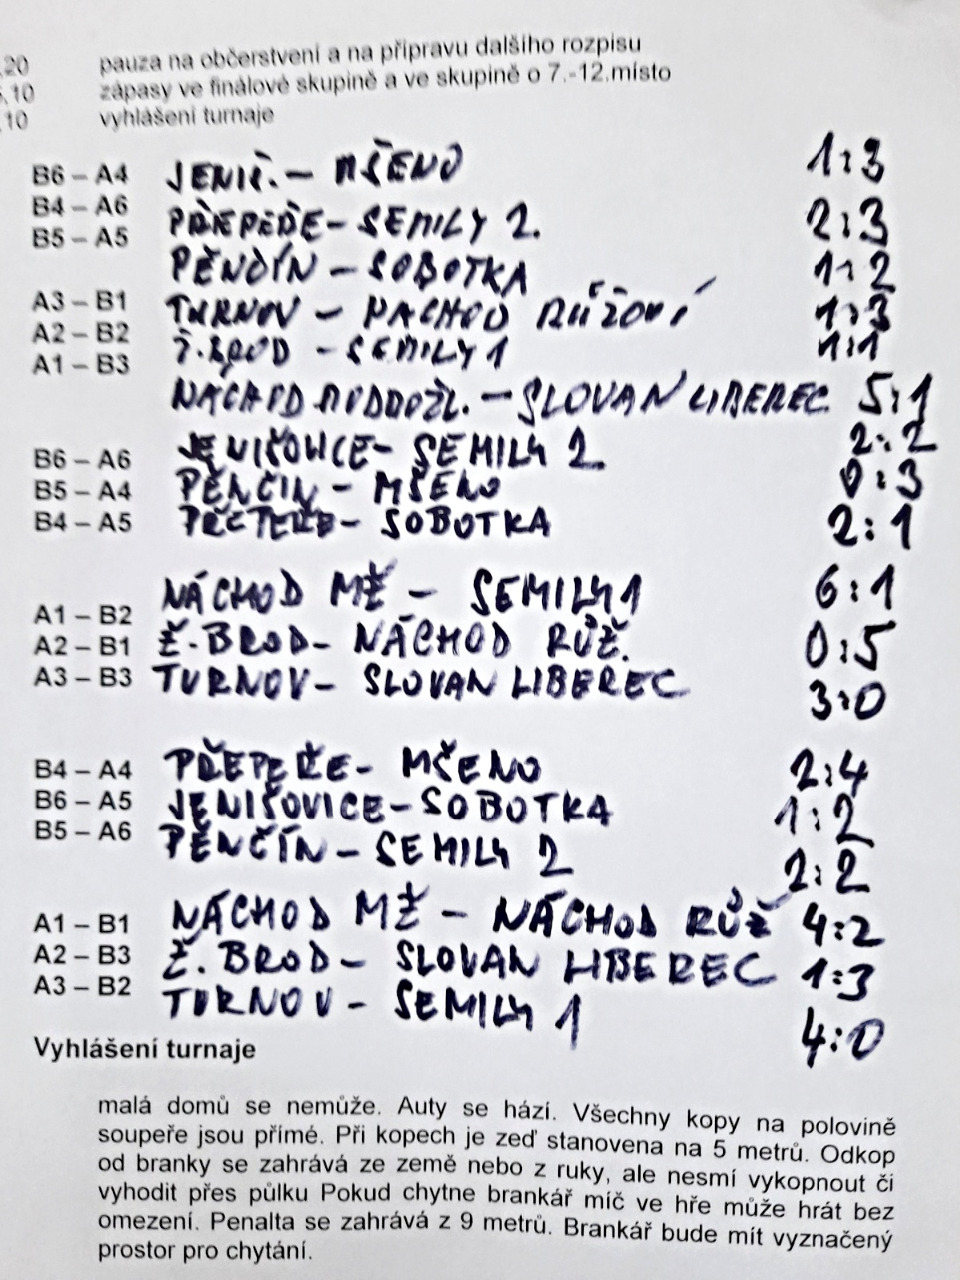 .20 pauza na občerstvení a na přípravu dalšího rozpisu
.10 zápasy ve finálové skupině a ve skupině o 7.-12.místo
.10 vyhlášení turnaje
B6 – A4 JENIŠ. – MŠENO 1:3
B4 – A6 PŘEPEŘE – SEMILY 2. 2:3
B5 – A5 PĚNČÍN – SOBOTKA 1:2
A3 – B1 TURNOV – NACHOD RŮŽOVÍ 1:3
A2 – B2 Ž.BROD – SEMILY 1 1:1
A1 – B3 NÁCHOD MODROŽL. – SLOVAN LIBEREC 5:1
B6 – A6 JENIŠOVICE – SEMILY 2. 2:2
B5 – A4 PĚNČÍN – MŠENO 0:3
B4 – A5 PŘEPEŘE – SOBOTKA 2:1
A1 – B2 NÁCHOD MŽ – SEMILY 1 6:1
A2 – B1 Ž.BROD – NÁCHOD RŮŽ. 0:5
A3 – B3 TURNOV – SLOVAN LIBEREC 3:0
B4 – A4 PŘEPEŘE – MŠENO 2:4
B6 – A5 JENIŠOVICE – SOBOTKA 1:2
B5 – A6 PĚNČÍN – SEMILY 2 2:2
A1 – B1 NÁCHOD MŽ – NÁCHOD RŮŽ 4:2
A2 – B3 Ž. BROD – SLOVAN LIBEREC 1:3
A3 – B2 TURNOV – SEMILY 1 4:0
Vyhlášení turnaje
malá domů se nemůže. Auty se hází. Všechny kopy na polovině
soupeře jsou přímé. Při kopech je zeď stanovena na 5 metrů. Odkop
od branky se zahrává ze země nebo z ruky, ale nesmí vykopnout či
vyhodit přes půlku Pokud chytne brankář míč ve hře může hrát bez
omezení. Penalta se zahrává z 9 metrů. Brankář bude mít vyznačený
prostor pro chytání.